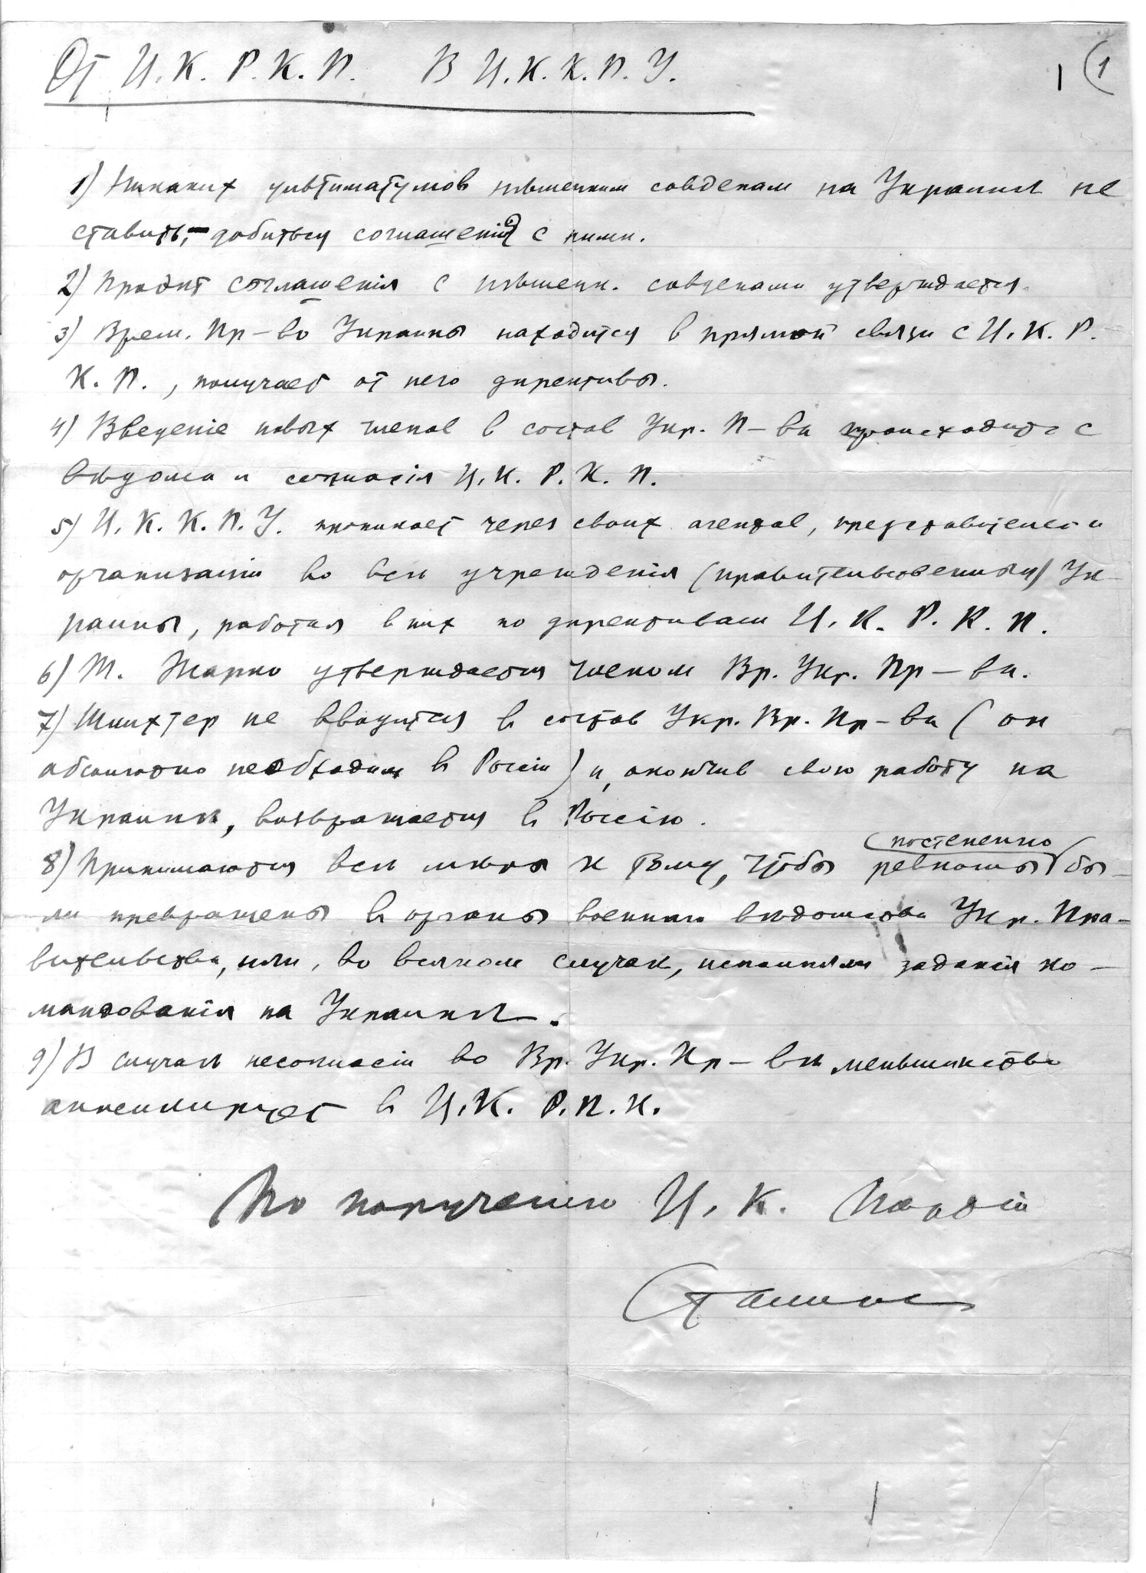 От Ц.К. Р.К.П. В Ц.К.К.П.У.
1 (1
1) Никаких ультиматумов нѣмецким совдепам на Украинѣ не
ставить, – добиться соглашенія с ними.
2) Проэкт соглашенія с нѣмецк. совдепами утверждается.
3) Врем. Пр–во Украины находится в прямой связи с Ц.К. Р.
К.П., получает от него директивы.
4) Введеніе новых членов в состав Укр. П–ва происходит с
вѣдома и согласія Ц.К. Р.К.П.
5) Ц.К.К.П.У. проникает через своих агентов, представителей и
организаціи во всѣ учрежденія (правительственныя) Ук–
раины, работая в них по директивам Ц.К. Р.К.П.
6) Т. Жарко утверждается членом Вр. Укр. Пр–ва.
7) Шлихтер не вводится в состав Укр. Вр. Пр–ва (он
абсолютно необходим в Россіи) и, окончив свою работу на
Украинѣ, возвращается в Россію.
постепенно
8) Принимаются всѣ мѣры к тому, чтобы ревкомы бы–
ли превращены в органы военнаго вѣдомства Укр. Пра–
вительства, или, во всяком случаѣ, исполняли заданія ко–
мандованія на Украинѣ.
9) В случаѣ несогласія во Вр. Укр. Пр–вѣ меньшинство
аппелирует в Ц.К. Р.П.К.
По порученію Ц.К. Партіи
Сталин